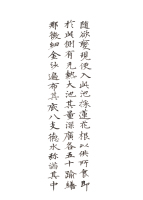 隨欲變現便入與池採蓮花根以供所食即
於與側有无熱大池其量深廣各五十踰繕
那微細金沙遍布其底八支德水彌滿其中